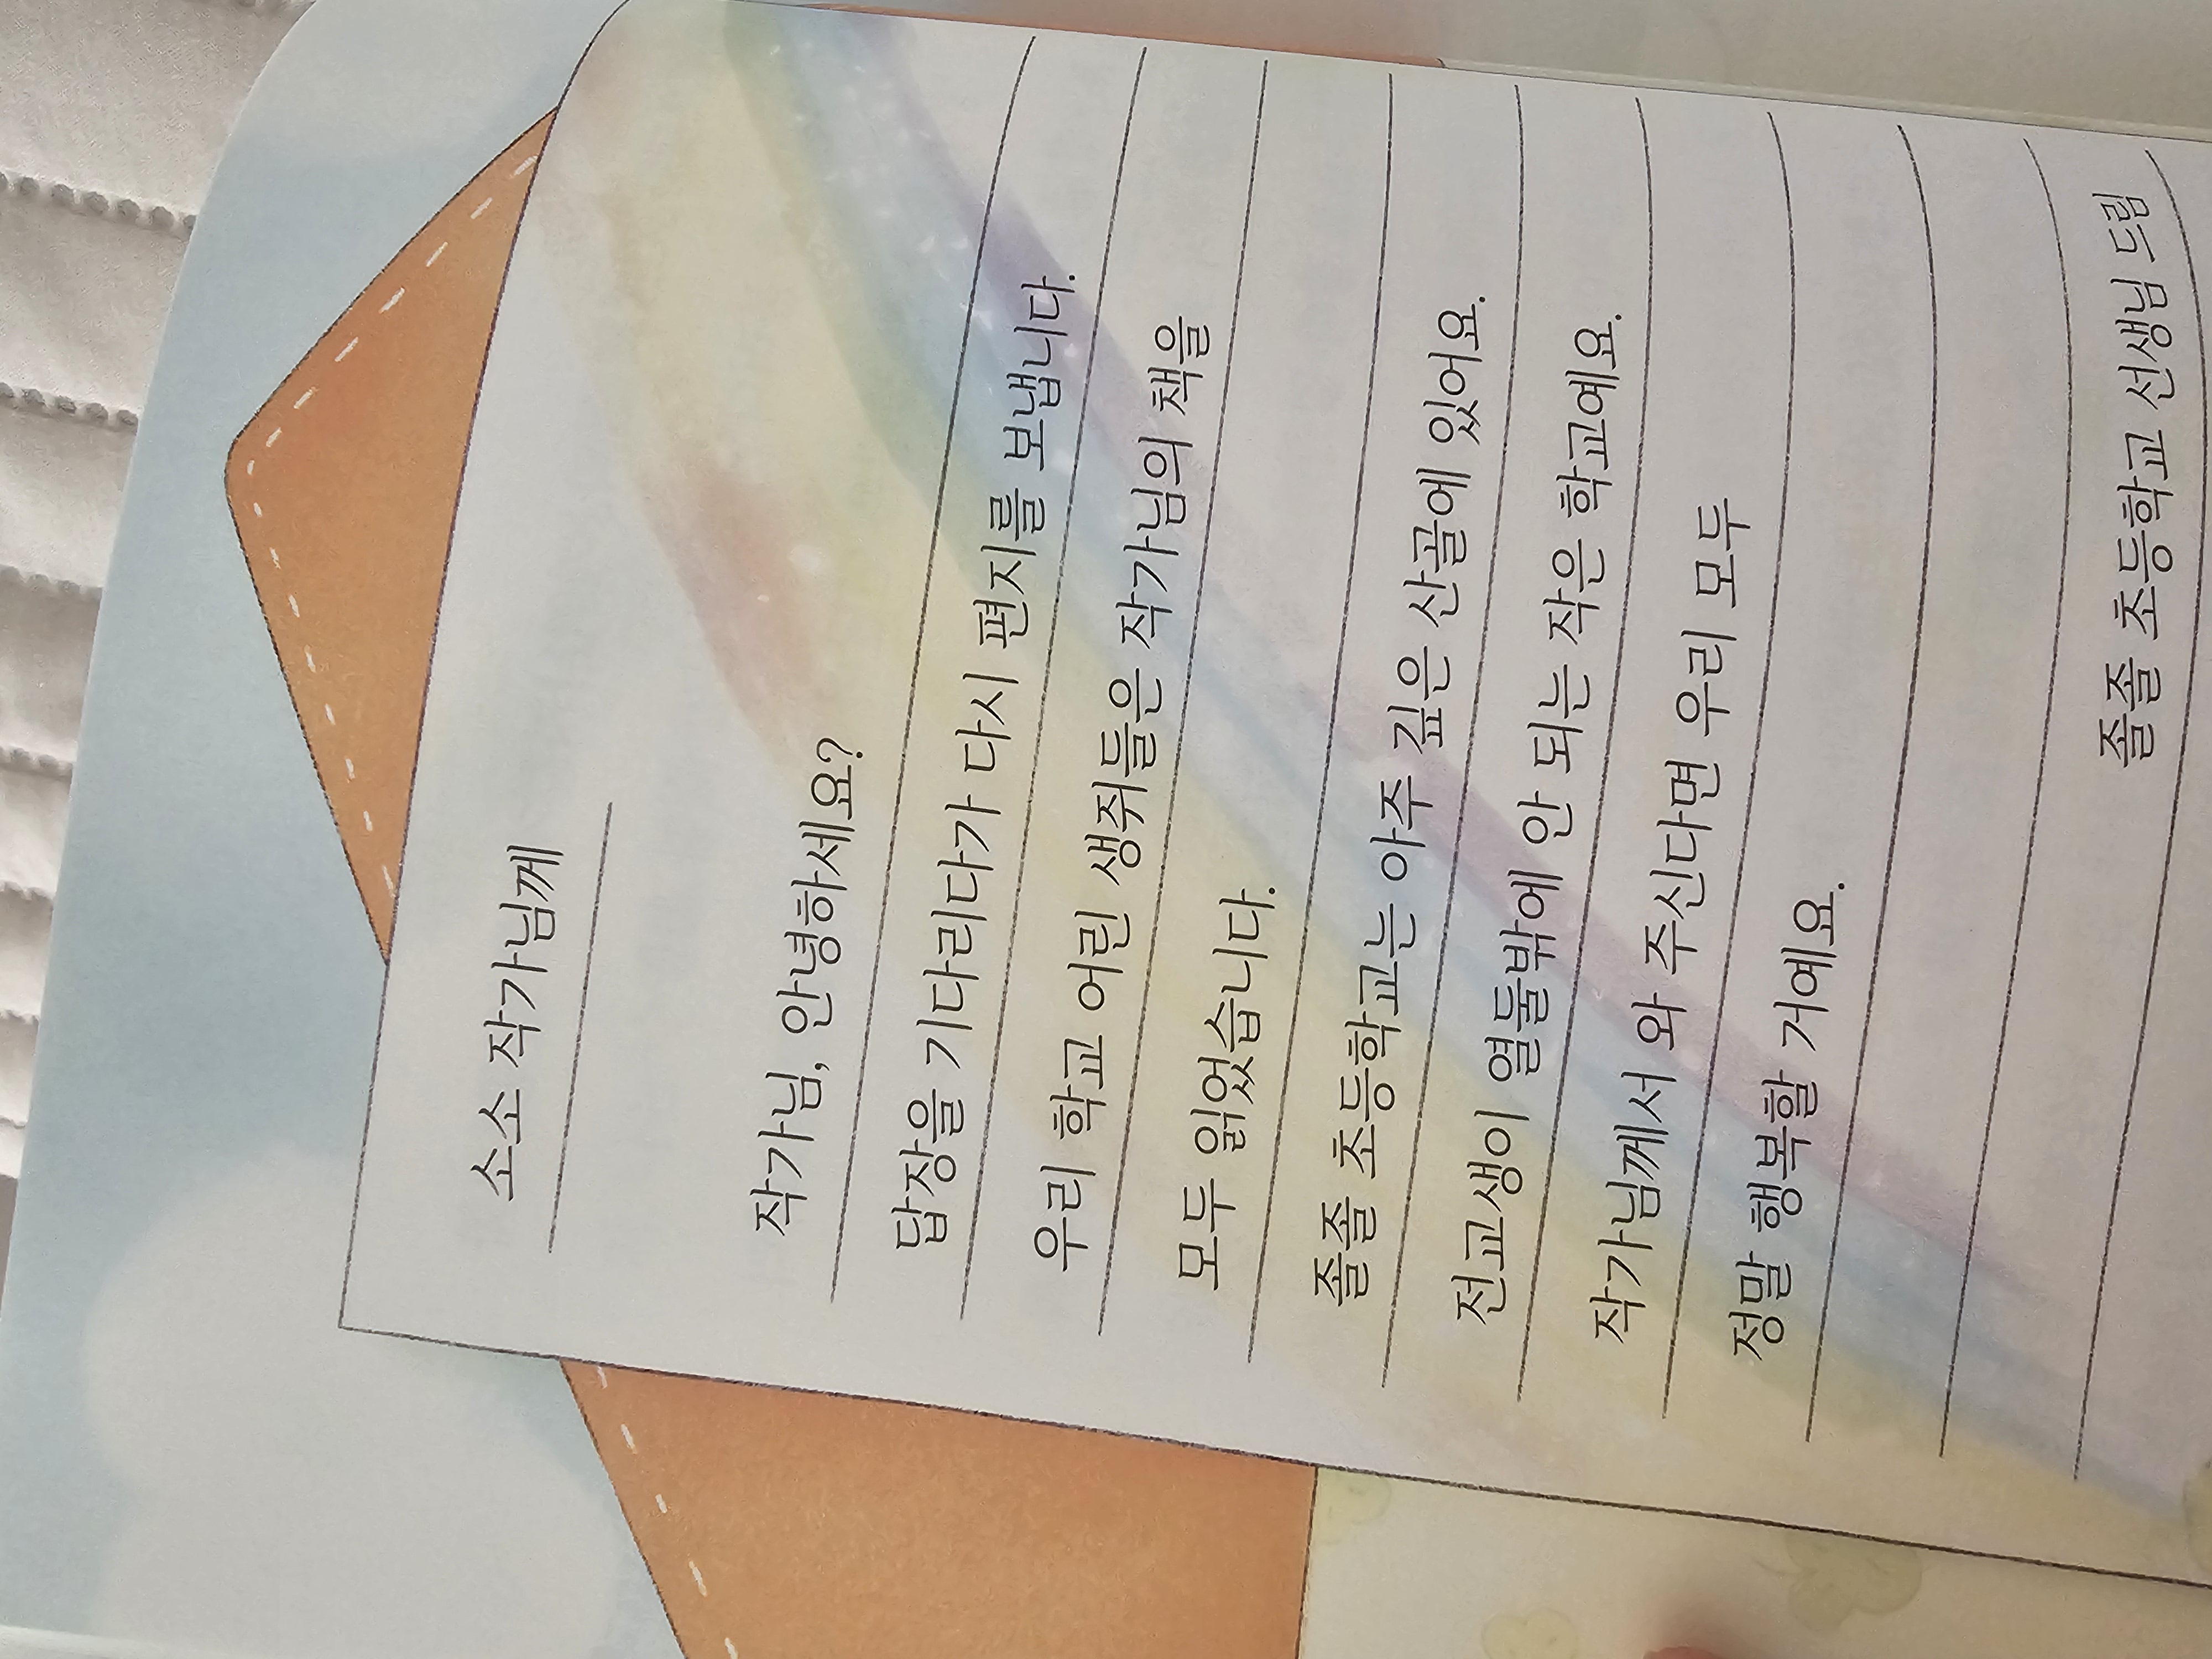 소소 작가님께
작가님, 안녕하세요?
답장을 기다리다가 다시 편지를 보냅니다.
우리 학교 어린 생쥐들은 작가님의 책을
모두 읽었습니다.
졸졸 초등학교는 아주 깊은 산골에 있어요.
전교생이 열둘밖에 안 되는 작은 학교예요.
작가님께서 와 주신다면 우리 모두
정말 행복할 거예요.
졸졸 초등학교 선생님 드림